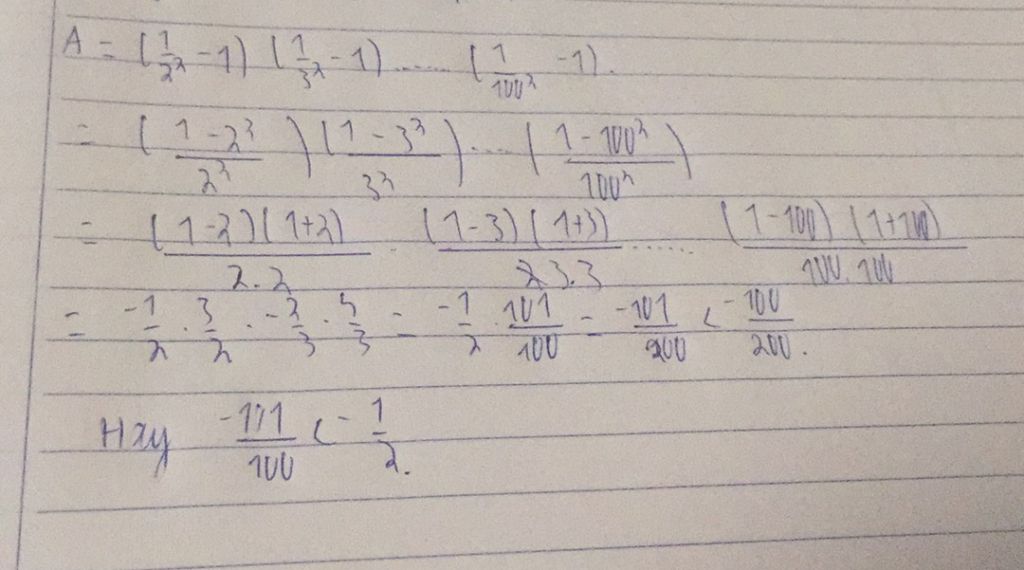 A = (1/2² - 1) (1/3² - 1) ...... (1/100² - 1).
= ( (1-2²)/2² ) ( (1-3²)/3² ) ... ( (1-100²)/100² )
= (1-2)(1+2)/2.2 . (1-3)(1+3)/3.3 ...... (1-100)(1+100)/100.100
= -1/2 . 3/2 . -2/3 . 4/3 = -1/2 . 101/100 = -101/200 < -100/200.
Hay -101/100 < -1/2.